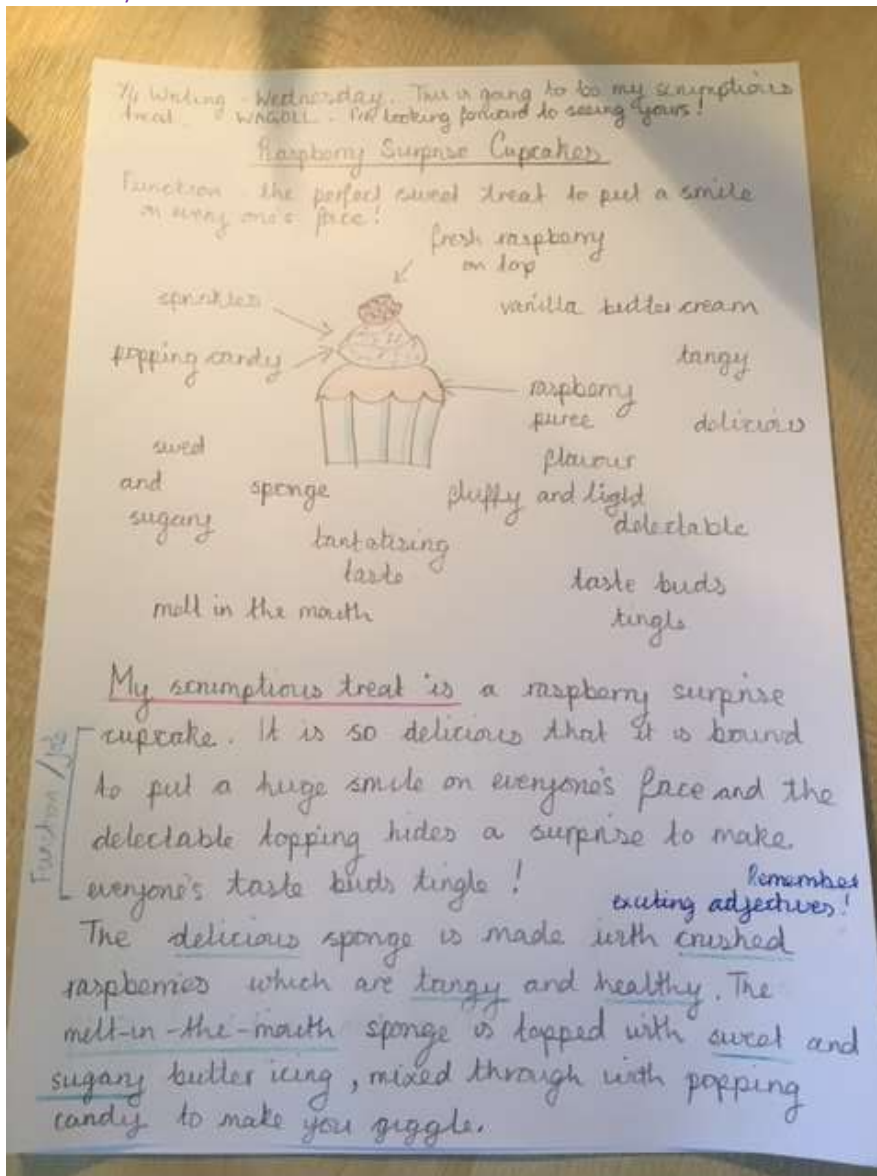 Writing - Wednesday. This is going to be my scrumptious
treat. WAGOLL. I'm looking forward to seeing yours!
Raspberry Surprise Cupcakes
Function - the perfect sweet treat to put a smile
on every one's face!
fresh raspberry
on top
sprinkles
vanilla butter cream
popping candy
tangy
raspberry
puree
delicious
flavour
sweet
and
sugary
sponge
fluffy and light
delectable
tantalising
taste
taste buds
tingle
melt in the mouth
My scrumptious treat is a raspberry surprise
cupcake. It is so delicious that it is bound
to put a huge smile on everyone's face and the
delectable topping hides a surprise to make
everyone's taste buds tingle!
Function/job
Remember
exciting adjectives!
The delicious sponge is made with crushed
raspberries which are tangy and healthy. The
melt-in-the-mouth sponge is topped with sweet and
sugary butter icing, mixed through with popping
candy to make you giggle.